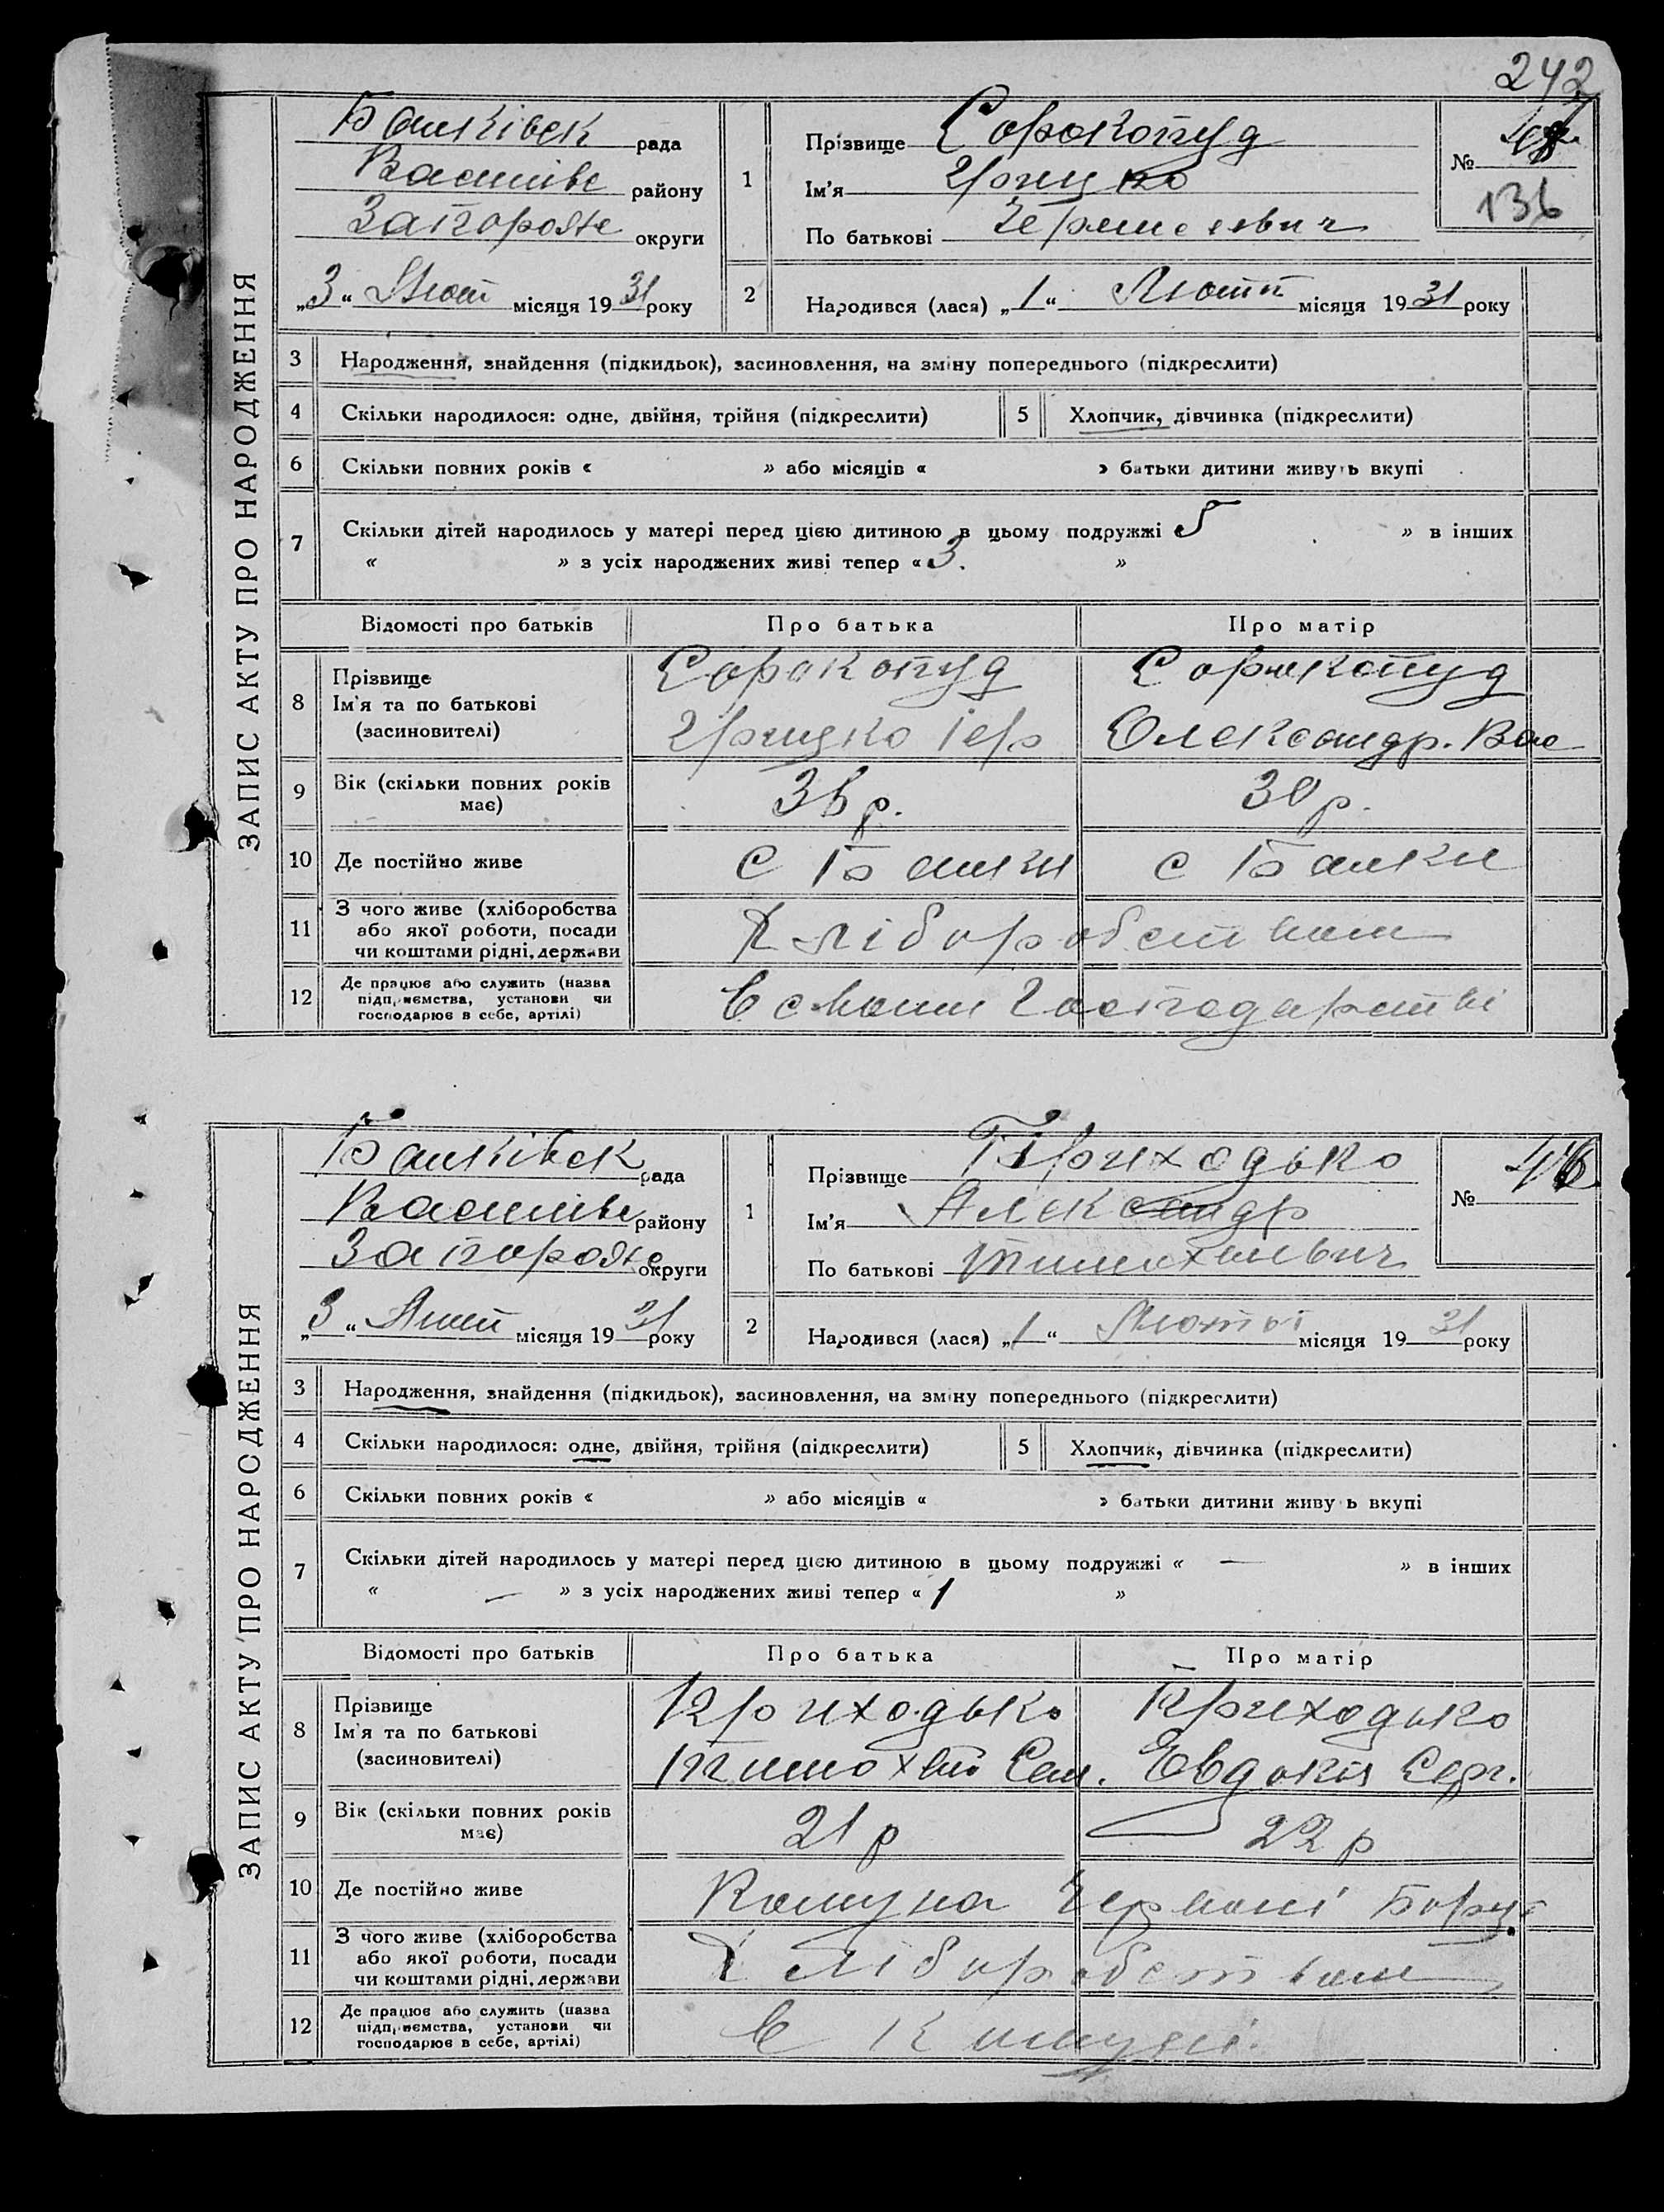 242
ЗАПИС АКТУ ПРО НАРОДЖЕННЯ
Балківск рада
Василівс района району
Запорожс округи
„3“ Лют місяця 1931 року
1
Прізвище Сорокопуд
Ім'я Грицко
По батькові
№
136
2
Народився (лася) „1“ Люти місяця 1931 року
3 Народження, знайдення (підкидьок), засиновлення, на зміну попереднього (підкреслити)
4 Скільки народилося: одне, двійня, трійня (підкреслити) 5 Хлопчик, дівчинка (підкреслити)
6 Скільки повних років « » або місяців « » батьки дитини живуть вкупі
7 Скільки дітей народилось у матері перед цією дитиною в цьому подружжі 5 » в інших
« » з усіх народжених живі тепер « 3. »
Відомості про батьків Про батька Про матір
8 Прізвище Ім'я та по батькові (засновителі)
Сорокопуд Сорокопуд
Грицко Іер Олександр. Вас
9 Вік (скільки повних років має) 36 р. 30 р.
10 Де постійно живе с Балки с Балки
11 З чого живе (хліборобства або якої роботи, посади чи коштами рідні, держави Хліборобством
12 Де працює або служить (назва підприємства, установи чи господарює в себе, артілі) В своим Господарстві
ЗАПИС АКТУ ПРО НАРОДЖЕННЯ
Балківск рада
Василівс району
Запорожс округи
„3“ Лют місяця 1931 року
1
Прізвище Приходько
Ім'я Александр
По батькові Тимохвиевич
№ 46
2
Народився (лася) „1“ Люты місяця 1931 року
3 Народження, знайдення (підкидьок), засиновлення, на зміну попереднього (підкреслити)
4 Скільки народилося: одне, двійня, трійня (підкреслити) 5 Хлопчик, дівчинка (підкреслити)
6 Скільки повних років « » або місяців « » батьки дитини живу ь вкупі
7 Скільки дітей народилось у матері перед цією дитиною в цьому подружжі « — » в інших
« — » з усіх народжених живі тепер « 1 »
Відомості про батьків Про батька Про матір
8 Прізвище Ім'я та по батькові (засиновителі)
Приходько Приходько
Тимохвій Сем. Євдокія Серг.
9 Вік (скільки повних років має) 21 р 22 р
10 Де постійно живе Комуна Червоні Борці
11 З чого живе (хліборобства або якої роботи, посади чи коштами рідні, держави Хліборобством
12 Де працює або служить (назва підприємства, установи чи господарює в себе, артілі) В Комуні.